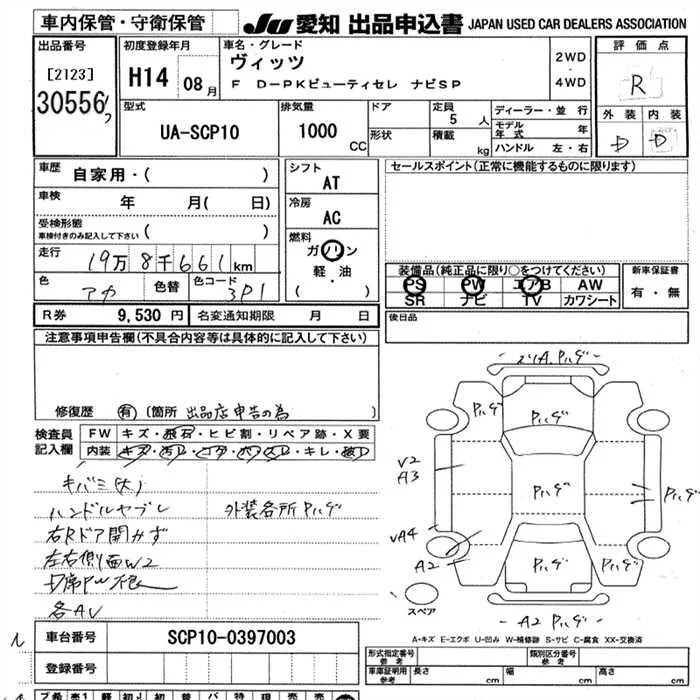 車内保管・守衛保管
JU 愛知 出品申込書 JAPAN USED CAR DEALERS ASSOCIATION
出品番号
[2123]
30556
初度登録年月
H14 08月
車名・グレード
ヴィッツ
F D-PKビューティセレ ナビSP
2WD
・
4WD
評価点
R
外装 内装
D D
型式
UA-SCP10
排気量
1000 CC
ドア
形状
定員
5 人
積載
kg
ディーラー・並行
モデル年式 年
ハンドル 左・右
車歴
自家用・( )
車検
年 月( 日)
受検形態
車検付きのみ記入して下さい ( )
走行
19万8千661km
色 アカ 色替 色コード 3P1
シフト
AT
冷房
AC
燃料
ガソリン
・
軽・油
( )
セールスポイント(正常に機能するものに限ります)
装備品(純正品に限り○をつけてください)
PS PW エアB AW
SR ナビ TV カワシート
新車保証書
有・無
後日品
R券 9,530 円 名変通知期限 月 日
注意事項申告欄(不具合内容等は具体的に記入して下さい)
修復歴 有 (箇所 出品店申告の為
検査員記入欄
FW キズ・飛石・ヒビ割・リペア跡・X要
内装 キズ・汚レ・コゲ・穴・スレ・キレ・破レ
キバミ(大)
ハンドルヤブレ 外装各所Pハゲ
右Rドア開かず
左右側面W2
D席PW不良
各AV
2ハA.Pハゲ
Pハゲ
Pハゲ
V2
A3
Pハゲ
VA4
A2
Pハゲ
Pハゲ
A2 Pハゲ
スペア
A-キズ E-エクボ U-凹み W-補修跡 S-サビ C-腐食 XX-交換済
車台番号 SCP10-0397003
登録番号
形式指定番号
参考
類別区分番号
参考
車庫証明用
参考
長さ cm 幅 cm 高さ cm